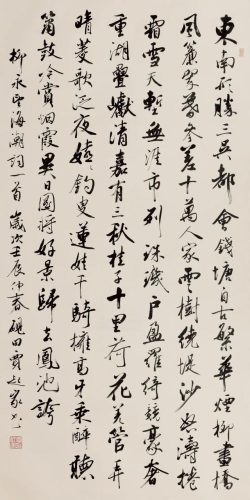 東南形勝三吳都會錢塘自古繁華煙柳畫橋
風簾翠幕參差十萬人家雲樹繞堤沙怒濤捲
霜雪天塹無涯市列珠璣戶盈羅綺競豪奢
重湖疊巘清嘉有三秋桂子十里荷花羌管弄
晴菱歌泛夜嬉嬉釣叟蓮娃千騎擁高牙乘醉聽
簫鼓吟賞烟霞異日圖將好景歸去鳳池誇
柳永望海潮詞一首 歲次壬辰仲春硯田賈起家書